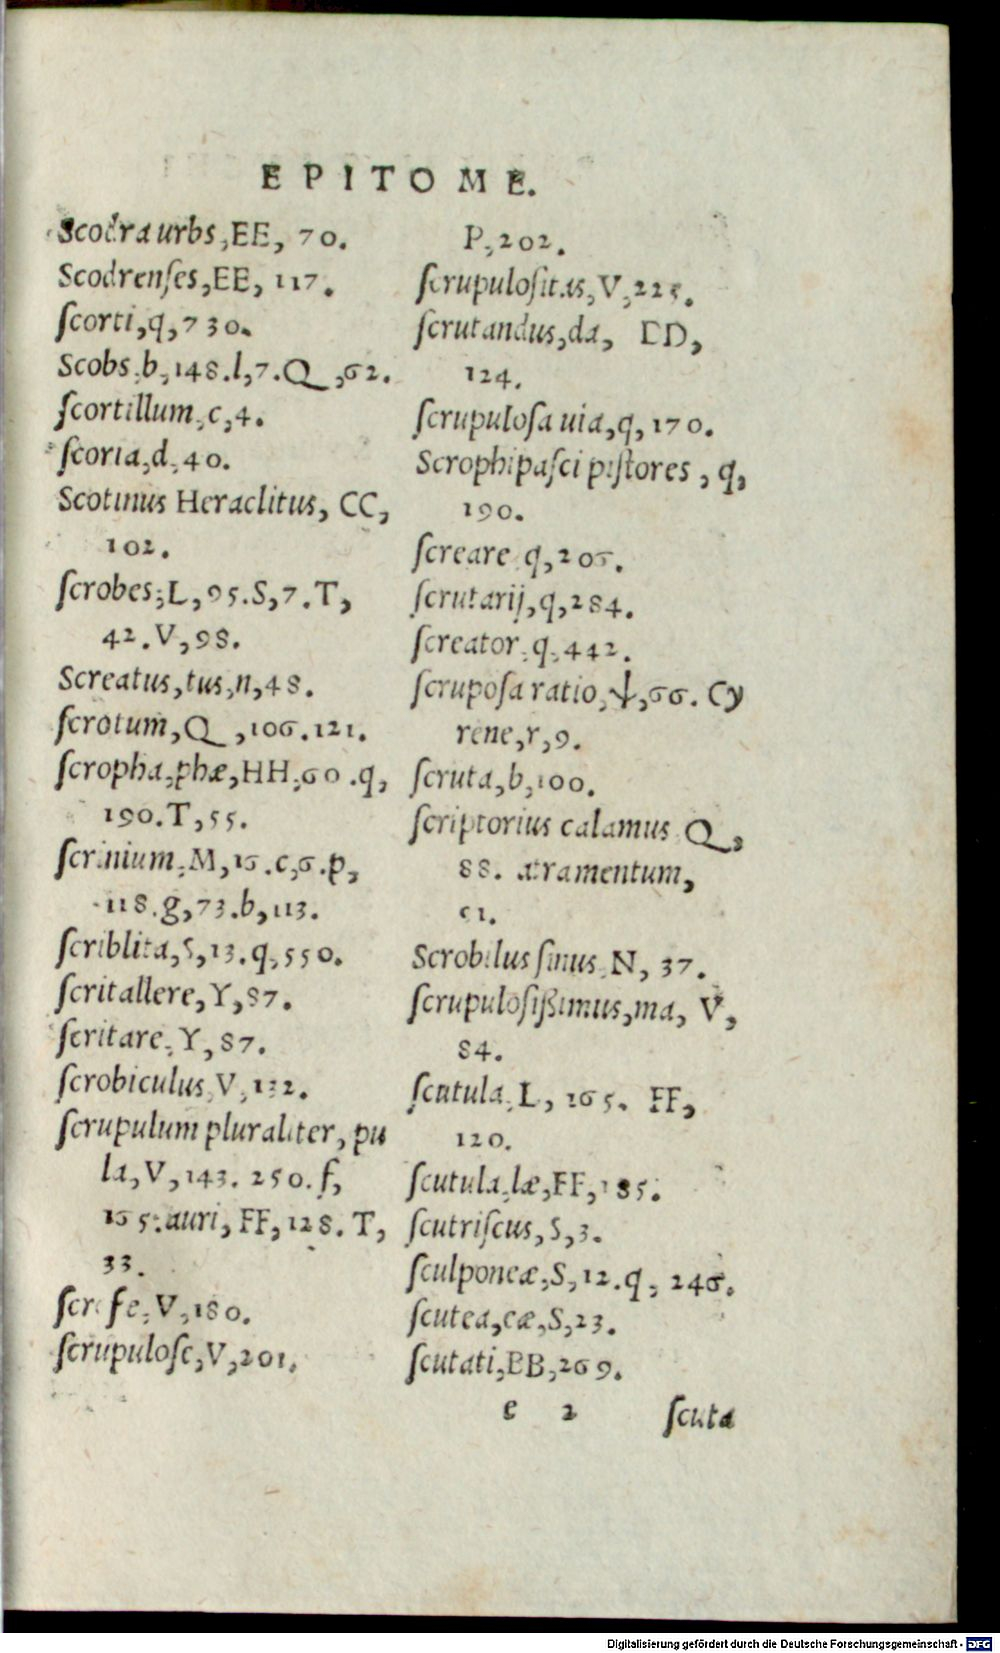 EPITOME.
Scodra urbs, EE, 70.
Scodrenses, EE, 117.
ſcorti, q, 730.
Scobs, b, 148. l, 7. Q, 62.
ſcortillum, c, 4.
ſcoria, d, 40.
Scotinus Heraclitus, CC,
102.
ſcrobes, L, 95. S, 7. T,
42. V, 98.
Screatus, tus, n, 48.
ſcrotum, Q, 106. 121.
ſcropha, phæ, HH, 60. q,
190. T, 55.
ſcrinium, M, 16. c, 6. p,
118. g, 73. b, 113.
ſcriblita, S, 13. q, 550.
ſcritallere, Y, 87.
ſcritare, Y, 87.
ſcrobiculus, V, 132.
ſcrupulum pluraliter, pu
la, V, 143. 250. f,
165. auri, FF, 128. T,
33.
V, 180.
ſcrupuloſe, V, 201.
P, 202.
ſcrupuloſitas, V, 225.
ſcrutandus, da, DD,
124.
ſcrupuloſa uia, q, 170.
Scrophipaſci piſtores, q,
190.
ſcreare q, 206.
ſcrutarij, q, 284.
ſcreator, q, 442.
ſcrupoſa ratio, ψ, 66. Cy
rene, r, 9.
ſcruta, b, 100.
ſcriptorius calamus Q,
88. atramentum,
Scrobilus ſinus, N, 37.
ſcrupuloſißimus, ma, V,
84.
ſcutula, L, 165. FF,
120.
ſcutula, læ, FF, 185.
ſcutriſcus, S, 3.
ſculponeæ, S, 12. q, 246.
ſcutea, eæ, S, 23.
ſcutati, BB, 269.
e 2 ſcuta
Digitalisierung gefördert durch die Deutsche Forschungsgemeinschaft - DFG